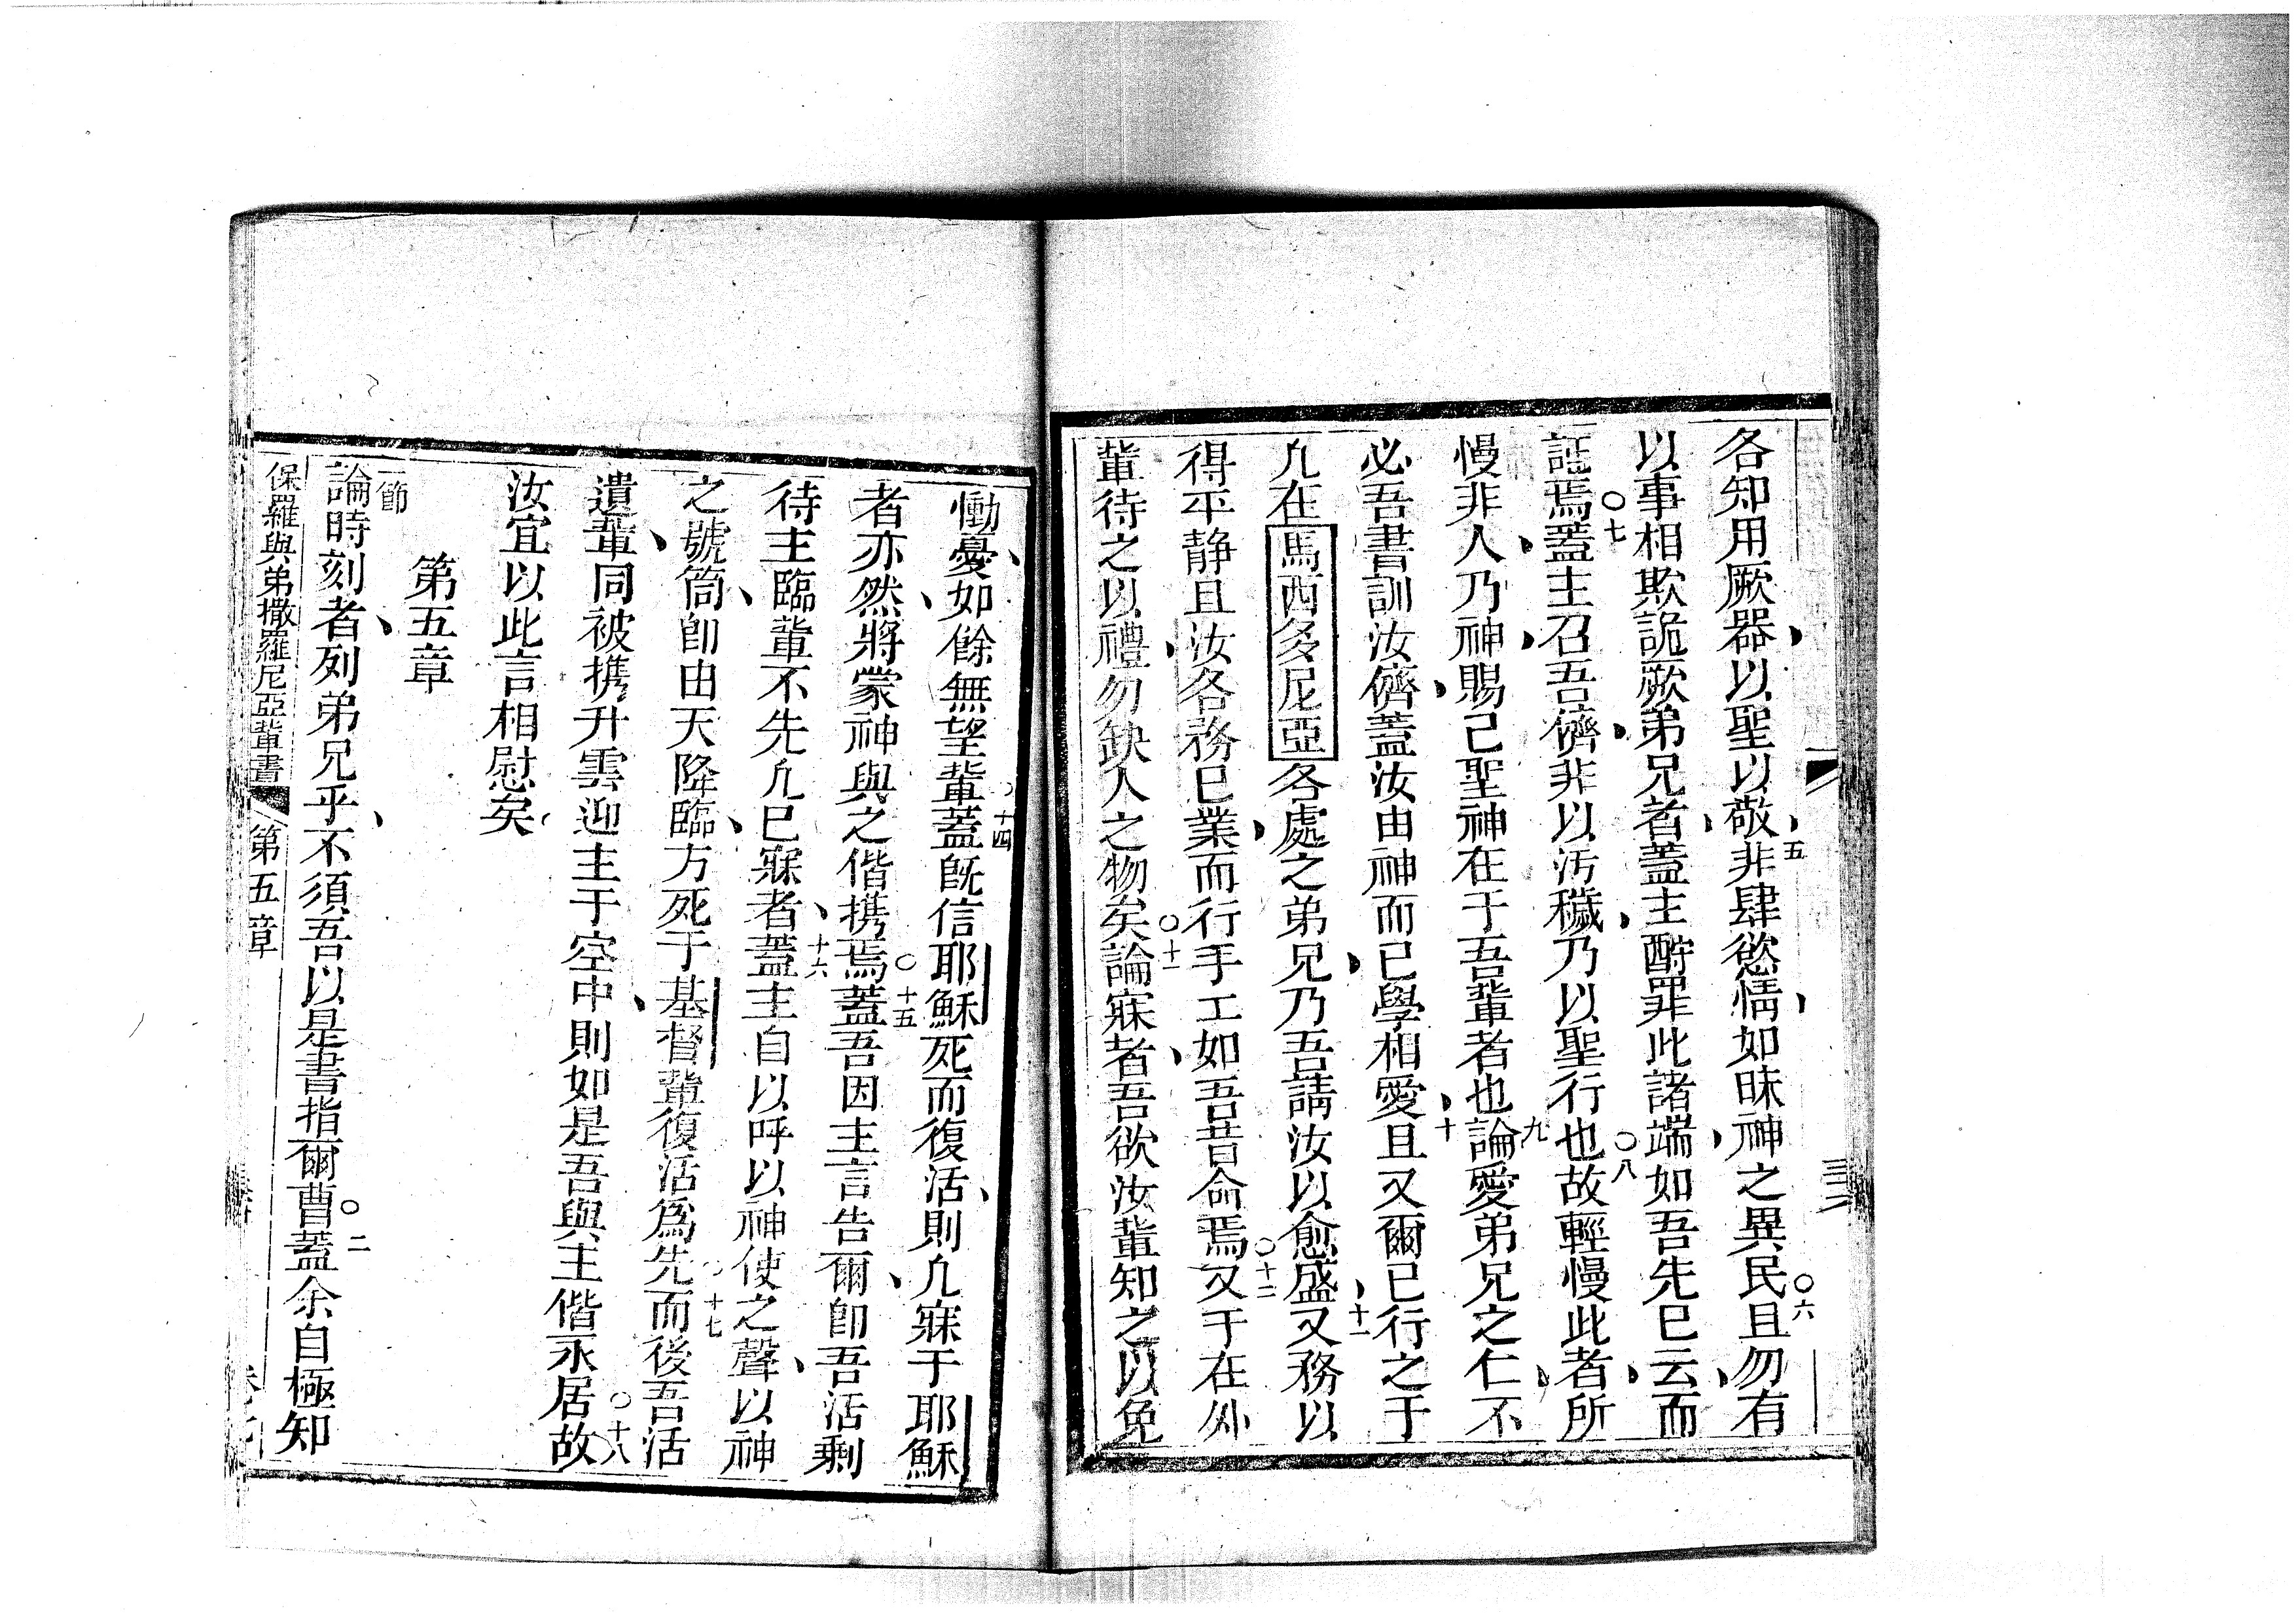 各知用厥器、以聖以敬、五非肆慾情、如昧神之異民○六且勿有
以事相欺詭厥弟兄者、蓋主酧罪此諸端、如吾先已云、而
証焉○七蓋主召吾儕、非以汚穢、乃以聖行也○八故輕慢此者、所
慢非人、乃神、賜己聖神在于吾輩者也九論愛弟兄之仁、不
必吾書訓汝儕、蓋汝由神而已學相愛、十且又爾已行之于
凢在馬西多尼亞各處之弟兄、乃吾請汝以愈盛、十一又務以
得平静且汝各務已業、而行手工如吾昔命焉○十二又于在外
輩待之以禮、勿缺人之物矣○十三論寐者、吾欲汝輩知之以免
慟憂、如餘無望輩○十四蓋旣信耶穌死而復活、則凢寐于耶穌
者亦然、將蒙神與之偕携焉○十五蓋吾因主言告爾、卽吾活剩
待主臨輩不先凢已寐者、十六蓋主自以呼以神使之聲、以神
之號筒、卽由天降臨、方死于基督輩復活爲先○十七而後吾活
遺輩、同被携升雲迎主于空中、則如是吾與主偕永居○十八故
汝宜以此言相慰矣
第五章
一節論時刻者、列弟兄乎、不須吾以是書指爾曹○二蓋余自極知
保羅與弟撒羅尼亞輩書 第五章